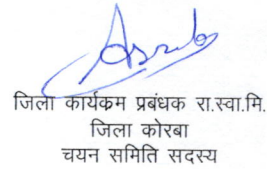 जिला कार्यक्रम प्रबंधक रा.स्वा.मि.
जिला कोरबा
चयन समिति सदस्य